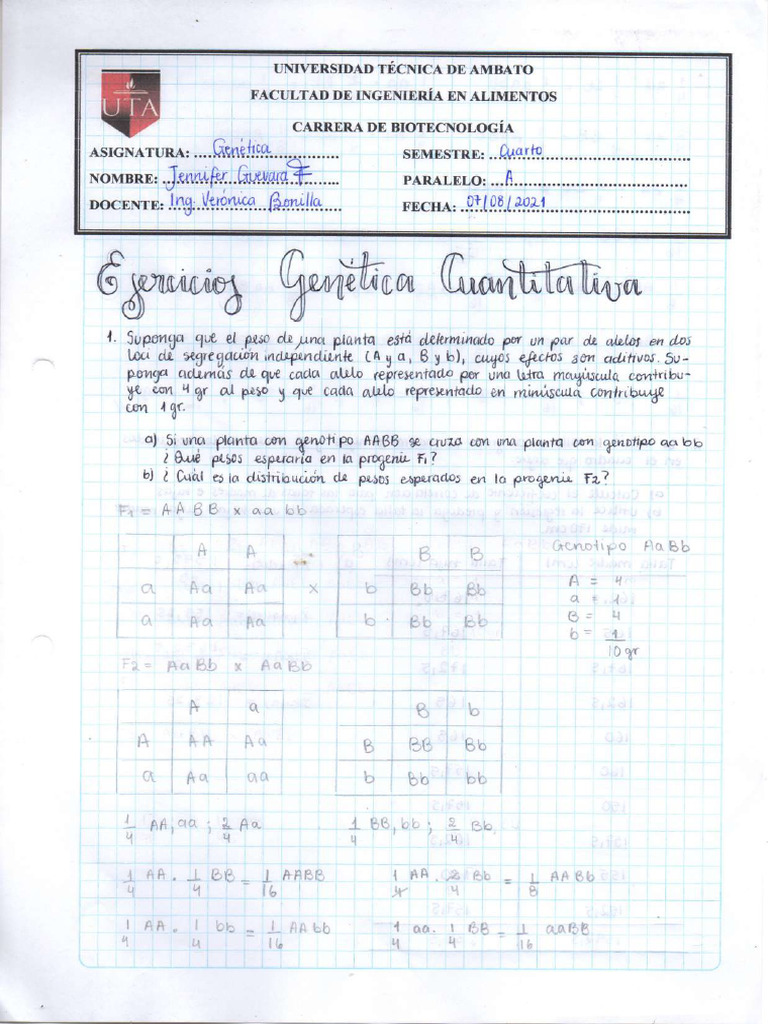 UNIVERSIDAD TÉCNICA DE AMBATO
FACULTAD DE INGENIERÍA EN ALIMENTOS
CARRERA DE BIOTECNOLOGÍA
UTA
ASIGNATURA: Genética SEMESTRE: Cuarto
NOMBRE: Jennifer Guevara F PARALELO: A
DOCENTE: Ing. Verónica Bonilla FECHA: 07/08/2021
Ejercicios Genética Cuantitativa
1. Suponga que el peso de una planta está determinado por un par de alelos en dos
loci de segregación independiente (A y a, B y b), cuyos efectos son aditivos. Su-
ponga además de que cada alelo representado por una letra mayúscula contribu-
ye con 4 gr al peso y que cada alelo representado en minúscula contribuye
con 1 gr.
a) Si una planta con genotipo AABB se cruza con una planta con genotipo aa bb
¿Qué pesos esperaría en la progenie F1?
b) ¿Cuál es la distribución de pesos esperados en la progenie F2?
F1 = AABB x aa bb
A A B B Genotipo AaBb
a Aa Aa x b Bb Bb A = 4
a = 1
a Aa Aa b Bb Bb B = 4
b = 1
10 gr
F2 = AaBb x AaBb
A a B b
A AA Aa B BB Bb
a Aa aa b Bb bb
1/4 AA, aa ; 2/4 Aa 1/4 BB, bb ; 2/4 Bb
1/4 AA . 1/4 BB = 1/16 AABB 1/4 AA . 2/4 Bb = 1/8 AABb
1/4 AA . 1/4 bb = 1/16 AAbb 1/4 aa . 1/4 BB = 1/16 aaBB